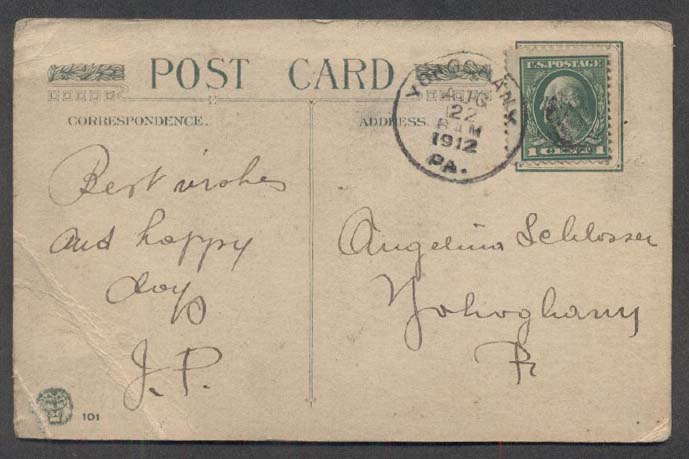 POST CARD
CORRESPONDENCE.
ADDRESS.
AUG
22
8 AM
1912
PA.
U.S. POSTAGE
1 CENT 1
Best wishes
and happy
days
J.P.
Angelina Schlosser
Yohoghany
Pa
101